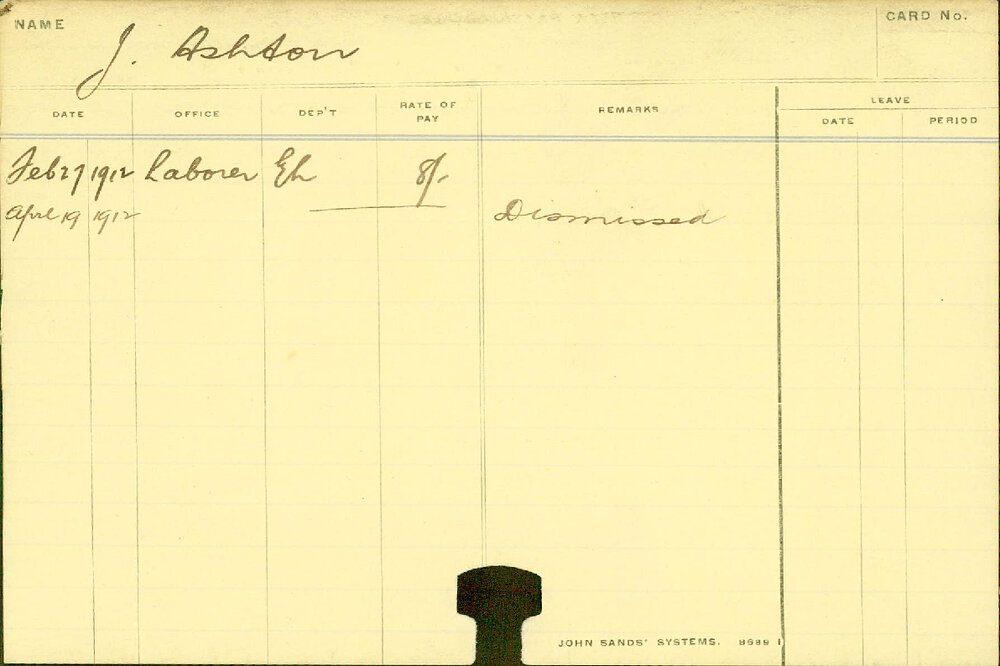 NAME
J. Ashton
CARD No.
DATE OFFICE DEP'T RATE OF PAY REMARKS LEAVE
DATE PERIOD
Feb 27 1912 Laborer Eh 8/-
April 19 1912 Dismissed
JOHN SANDS' SYSTEMS. 8689 1